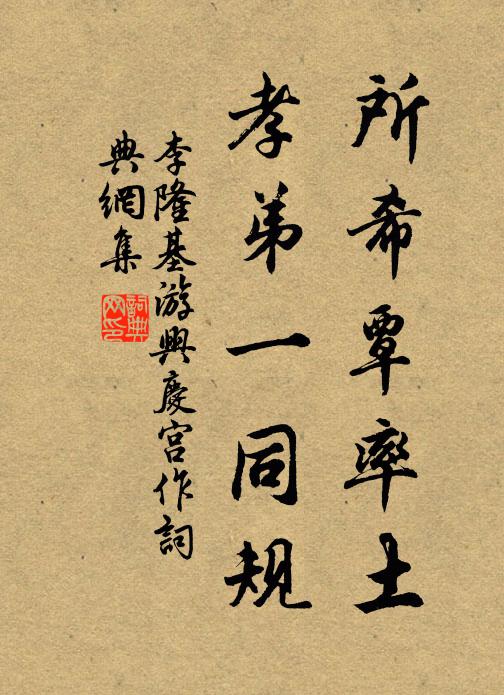 所希覃率土
孝弟一同規
李隆基游興慶宮作詞
典網集
詞典
网印